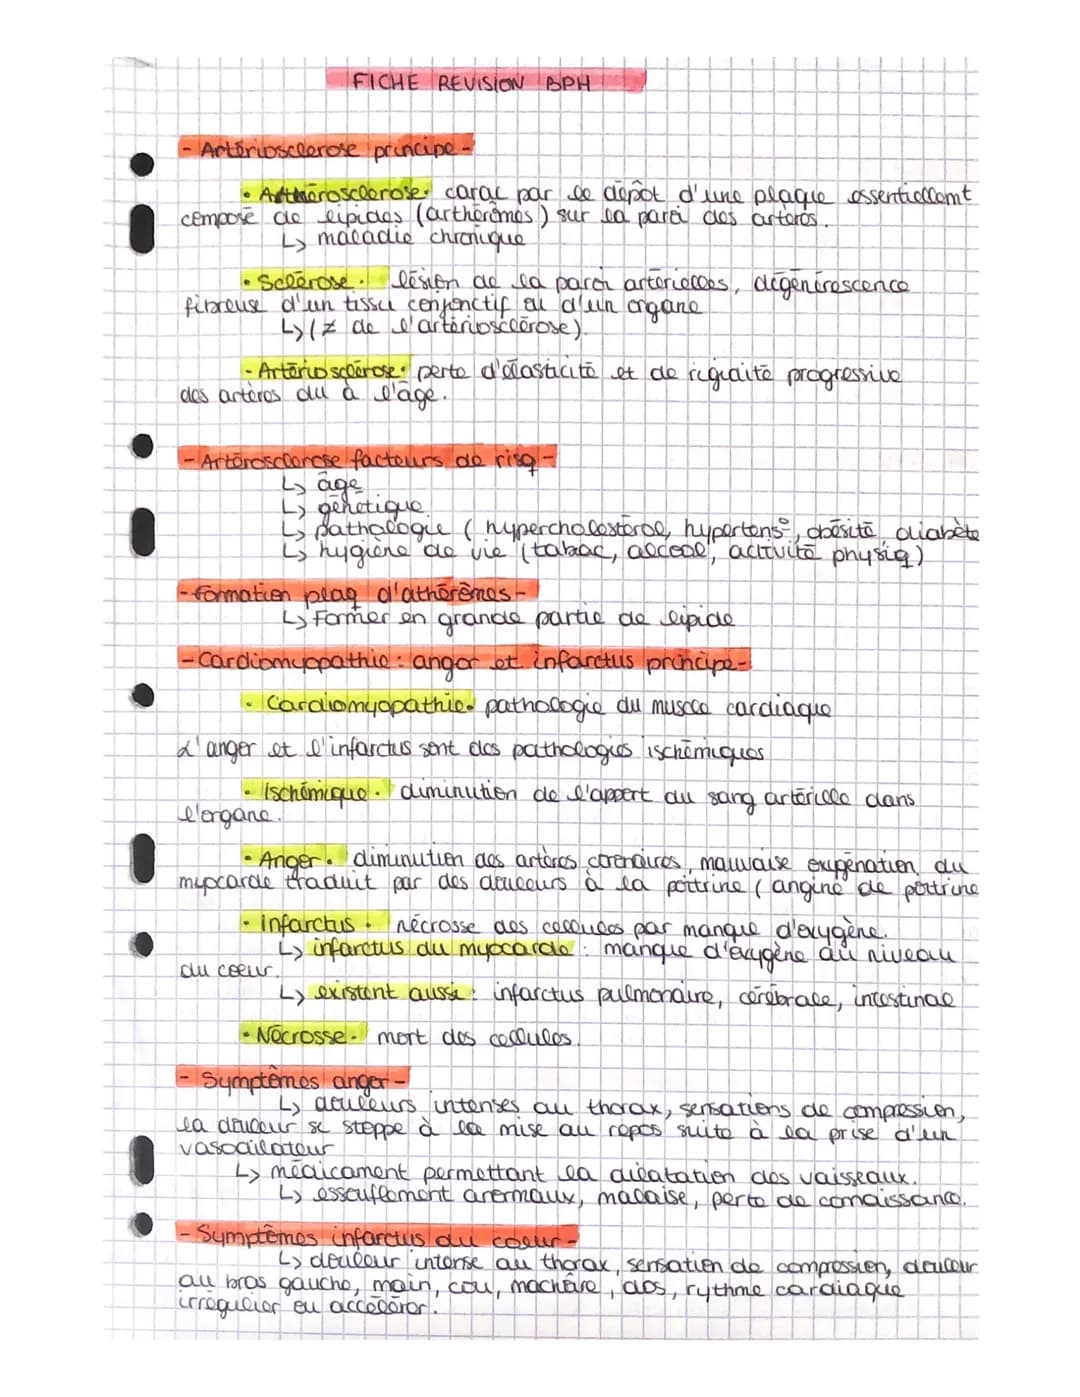 FICHE REVISION BPH
- Artériosclerose principe -
• Arthérosclerose. carac par le dépôt d'une plaque essentiellemt
composé de lipides (arthérômes) sur la paroi des artères.
↳ maladie chronique
• Sclérose. lésion de la paroi artérielles, dégénérescence
fibreuse d'un tissu conjonctif ou d'un organe
↳ (≠ de l'artériosclérose).
- Artériosclérose. perte d'élasticité et de rigidité progressive
des artères du à l'âge.
- Artérosclerose facteurs de risq -
↳ âge
↳ génétique
↳ pathologie (hypercholestérol, hypertens°, obésité, diabète
↳ hygiène de vie (tabac, alcool, activité physiq)
- formation plaq d'athérômes -
↳ Former en grande partie de lipide
- Cardiomyopathie : angor et infarctus principe -
• Cardiomyopathie. pathologie du muscle cardiaque
L'angor et l'infarctus sont des pathologies ischémiques
• Ischémique. diminution de l'apport du sang artérielle dans
l'organe.
• Angor. diminution des artères coronaires, mauvaise oxygénation du
myocarde traduit par des douleurs à la poitrine (angine de poitrine
• infarctus. nécrosse des cellules par manque d'oxygène.
↳ infarctus du myocarde : manque d'oxygène au niveau
du coeur.
↳ existent aussi : infarctus pulmonaire, cérébrale, intestinal
• Nécrosse. mort des cellules.
- Symptômes angor -
↳ douleurs intenses au thorax, sensations de compression,
la douleur se stoppe à la mise au repos suite à la prise d'un
vasodilateur
↳ médicament permettant la dilatation des vaisseaux.
↳ essouflement anormaux, malaise, perte de connaissance.
- Symptômes infarctus du coeur -
↳ douleur intense au thorax, sensation de compression, douleur
au bras gauche, main, cou, machoire, dos, rythme cardiaque
irrégulier ou accélérer.